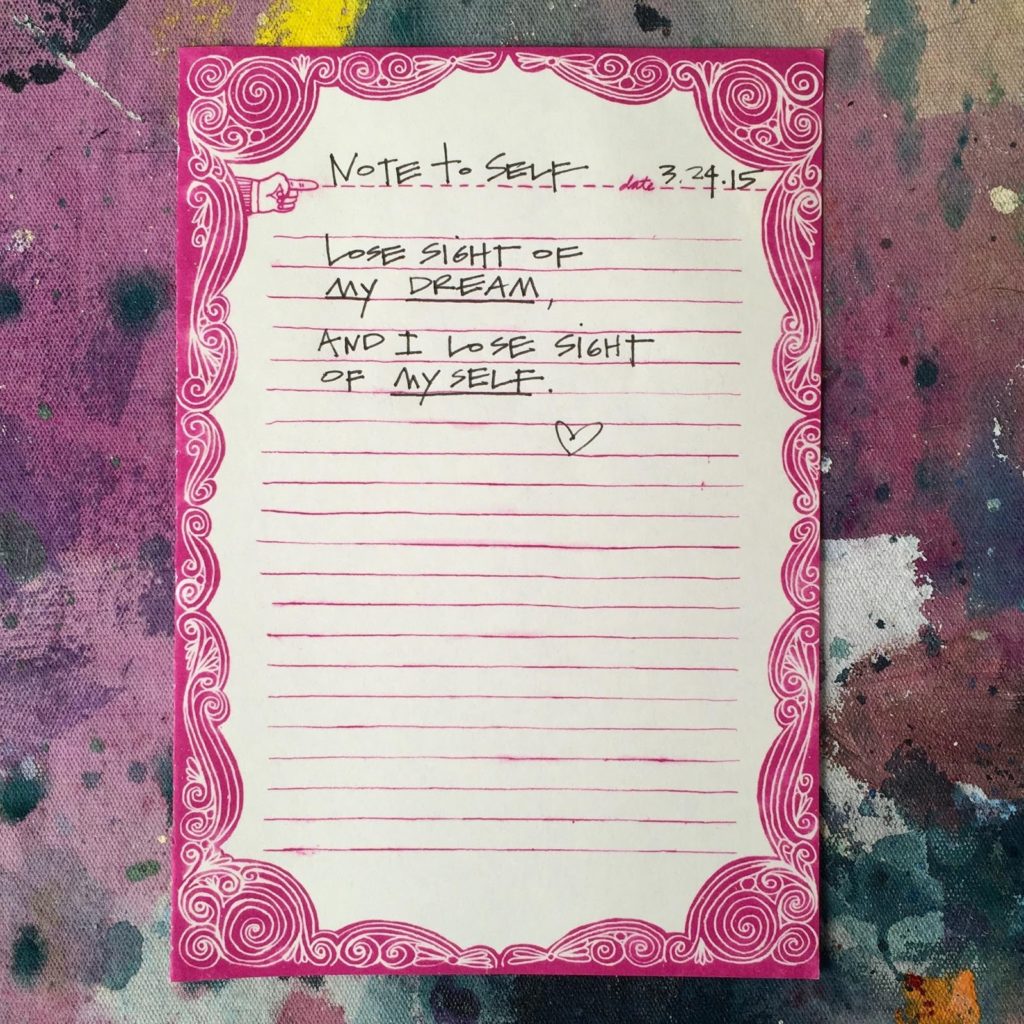 NOTE to SELF date 3.24.15
LOSE SIGHT OF
MY DREAM,
AND I LOSE SIGHT
OF MY SELF.